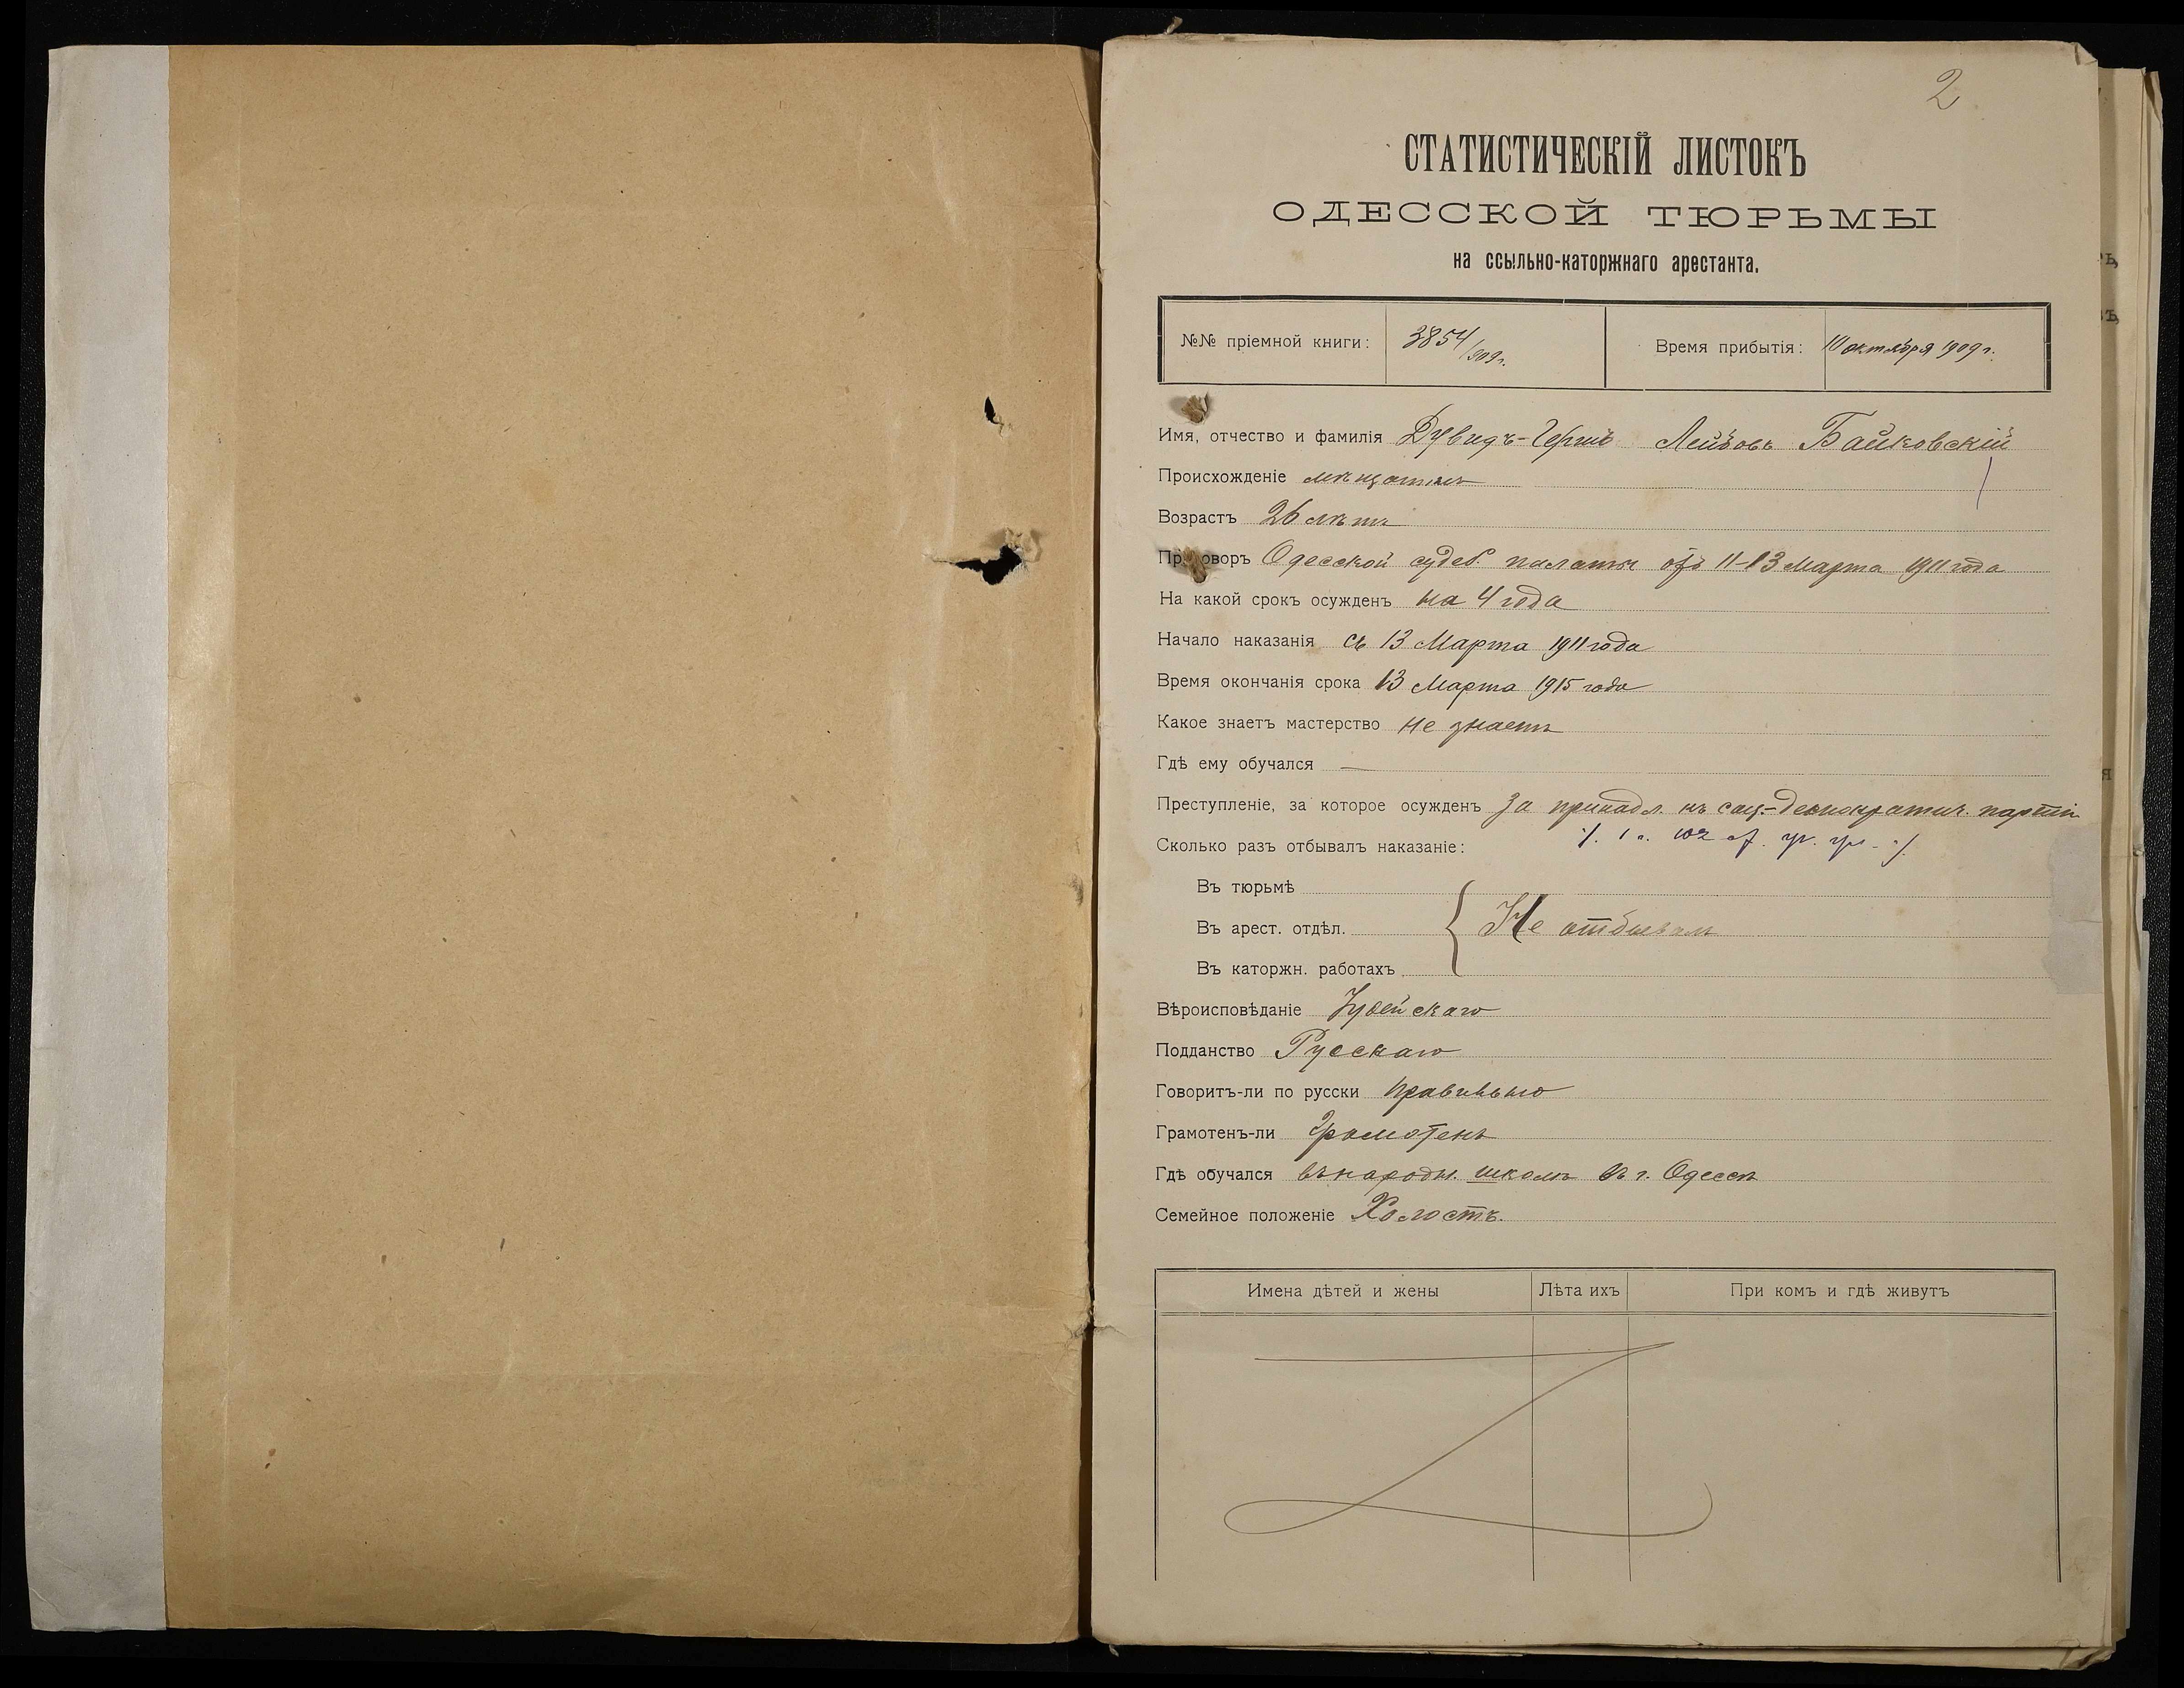 2
СТАТИСТИЧЕСКІЙ ЛИСТОКЪ
ОДЕССКОЙ ТЮРЬМЫ
на ссыльно-каторжнаго арестанта.
№№ пріемной книги: 3854/909 г. Время прибытія: 10 октября 1909 г.
Имя, отчество и фамилія Дувидъ-Гершъ Лейбовъ Байковскій
Происхожденіе мѣщанинъ
Возрастъ 26 лѣтъ
Приговоръ Одесской судеб. палаты отъ 11-13 Марта 1911 года
На какой срокъ осужденъ на 4 года
Начало наказанія съ 13 Марта 1911 года
Время окончанія срока 13 Марта 1915 года
Какое знаетъ мастерство не знаетъ
Гдѣ ему обучался —
Преступленіе, за которое осужденъ За принадл. къ соц.-демократич. партіи
1 ч. 102 ст. уг. ул.
Сколько разъ отбывалъ наказаніе:
Въ тюрьмѣ
Въ арест. отдѣл. Не отбывалъ
Въ каторжн. работахъ
Вѣроисповѣданіе Іудейскаго
Подданство Русскаго
Говоритъ-ли по русски правильно
Грамотенъ-ли Грамотенъ
Гдѣ обучался въ народн. школѣ въ г. Одессѣ
Семейное положеніе Холостъ.
Имена дѣтей и жены Лѣта ихъ При комъ и гдѣ живутъ